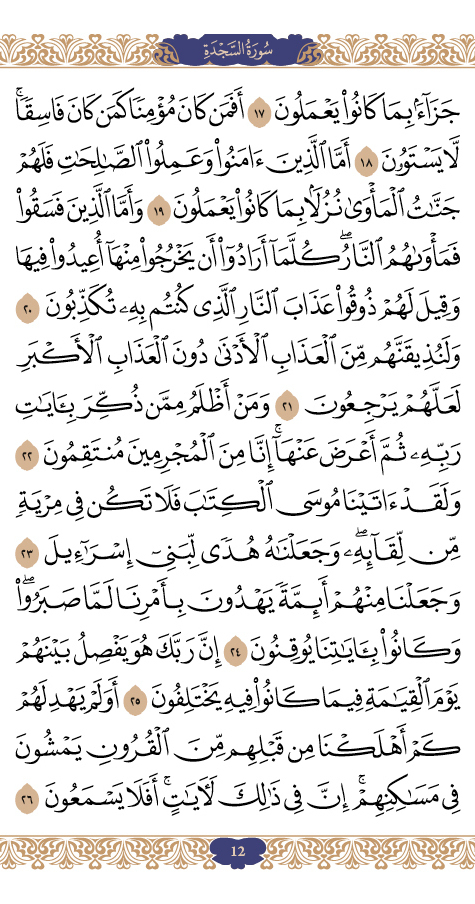 سُورَةُ السَّجْدَةِ
جَزَآءَۢ بِمَا كَانُوا۟ يَعْمَلُونَ ١٧ أَفَمَن كَانَ مُؤْمِنًا كَمَن كَانَ فَاسِقًا ۚ
لَّا يَسْتَوُۥنَ ١٨ أَمَّا ٱلَّذِينَ ءَامَنُوا۟ وَعَمِلُوا۟ ٱلصَّـٰلِحَـٰتِ فَلَهُمْ
جَنَّـٰتُ ٱلْمَأْوَىٰ نُزُلًۢا بِمَا كَانُوا۟ يَعْمَلُونَ ١٩ وَأَمَّا ٱلَّذِينَ فَسَقُوا۟
فَمَأْوَىٰهُمُ ٱلنَّارُ ۖ كُلَّمَآ أَرَادُوٓا۟ أَن يَخْرُجُوا۟ مِنْهَآ أُعِيدُوا۟ فِيهَا
وَقِيلَ لَهُمْ ذُوقُوا۟ عَذَابَ ٱلنَّارِ ٱلَّذِى كُنتُم بِهِۦ تُكَذِّبُونَ ٢٠
وَلَنُذِيقَنَّهُم مِّنَ ٱلْعَذَابِ ٱلْأَدْنَىٰ دُونَ ٱلْعَذَابِ ٱلْأَكْبَرِ
لَعَلَّهُمْ يَرْجِعُونَ ٢١ وَمَنْ أَظْلَمُ مِمَّن ذُكِّرَ بِـَٔايَـٰتِ
رَبِّهِۦ ثُمَّ أَعْرَضَ عَنْهَآ ۚ إِنَّا مِنَ ٱلْمُجْرِمِينَ مُنتَقِمُونَ ٢٢
وَلَقَدْ ءَاتَيْنَا مُوسَى ٱلْكِتَـٰبَ فَلَا تَكُن فِى مِرْيَةٍ
مِّن لِّقَآئِهِۦ ۖ وَجَعَلْنَـٰهُ هُدًى لِّبَنِىٓ إِسْرَٰٓءِيلَ ٢٣
وَجَعَلْنَا مِنْهُمْ أَئِمَّةً يَهْدُونَ بِأَمْرِنَا لَمَّا صَبَرُوا۟ ۖ
وَكَانُوا۟ بِـَٔايَـٰتِنَا يُوقِنُونَ ٢٤ إِنَّ رَبَّكَ هُوَ يَفْصِلُ بَيْنَهُمْ
يَوْمَ ٱلْقِيَـٰمَةِ فِيمَا كَانُوا۟ فِيهِ يَخْتَلِفُونَ ٢٥ أَوَلَمْ يَهْدِ لَهُمْ
كَمْ أَهْلَكْنَا مِن قَبْلِهِم مِّنَ ٱلْقُرُونِ يَمْشُونَ
فِى مَسَـٰكِنِهِمْ ۚ إِنَّ فِى ذَٰلِكَ لَـَٔايَـٰتٍ ۖ أَفَلَا يَسْمَعُونَ ٢٦
12